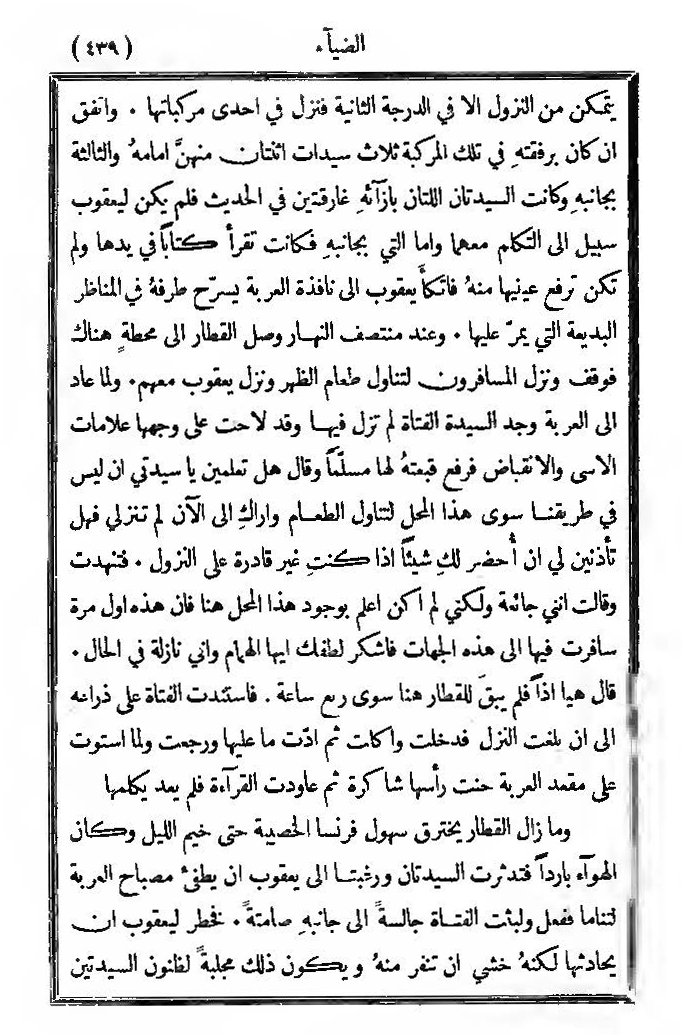 الضيآء (٤٣٩)
يتمكن من النزول الا في الدرجة الثانية فنزل في احدى مركباتها ٠ واتفق
ان كان برفقتهِ في تلك المركبة ثلاث سيدات اثنتان منهنَّ امامهُ والثالثة
بجانبهِ وكانت السيدتان اللتان بازآئهِ غارقتين في الحديث فلم يكن ليعقوب
سبيل الى التكلم معهما واما التي بجانبهِ فكانت تقرأ كتاباً في يدها ولم
تكن ترفع عينيها منهُ فاتكأ يعقوب الى نافذة العربة يسرّح طرفهُ في المناظر
البديعة التي يمرّ عليها ٠ وعند منتصف النهار وصل القطار الى محطةٍ هناك
فوقف ونزل المسافرون لتناول طعام الظهر ونزل يعقوب معهم ٠ ولما عاد
الى العربة وجد السيدة الفتاة لم تزل فيها وقد لاحت على وجهها علامات
الاسى والانقباض فرفع قبعتهُ لها مسلّماً وقال هل تعلمين يا سيدتي ان ليس
في طريقنا سوى هذا المحل لتناول الطعام واراكِ الى الآن لم تنزلي فهل
تأذنين لي ان أُحضر لكِ شيئاً اذا كنتِ غير قادرة على النزول ٠ فتنهدت
وقالت انني جائعة ولكني لم اكن اعلم بوجود هذا المحل هنا فان هذه اول مرة
سافرت فيها الى هذه الجهات فاشكر لطفك ايها الهمام واني نازلة في الحال ٠
قال هيا اذاً فلم يبقَ للقطار هنا سوى ربع ساعة ٠ فاستندت الفتاة على ذراعه
الى ان بلغت النزل فدخلت واكلت ثم ادّت ما عليها ورجعت ولما استوت
على مقعد العربة حنت رأسها شاكرة ثم عاودت القرآءة فلم يعد يكلمها
وما زال القطار يخترق سهول فرنسا الخصيبة حتى خيم الليل وكان
الهوآء بارداً فتدثرت السيدتان ورغبتا الى يعقوب ان يطفئ مصباح العربة
لتناما ففعل ولبثت الفتاة جالسةً الى جانبهِ صامتةً ٠ فخطر ليعقوب ان
يحادثها لكنهُ خشي ان تنفر منهُ ويكون ذلك مجلبةً لظنون السيدتين